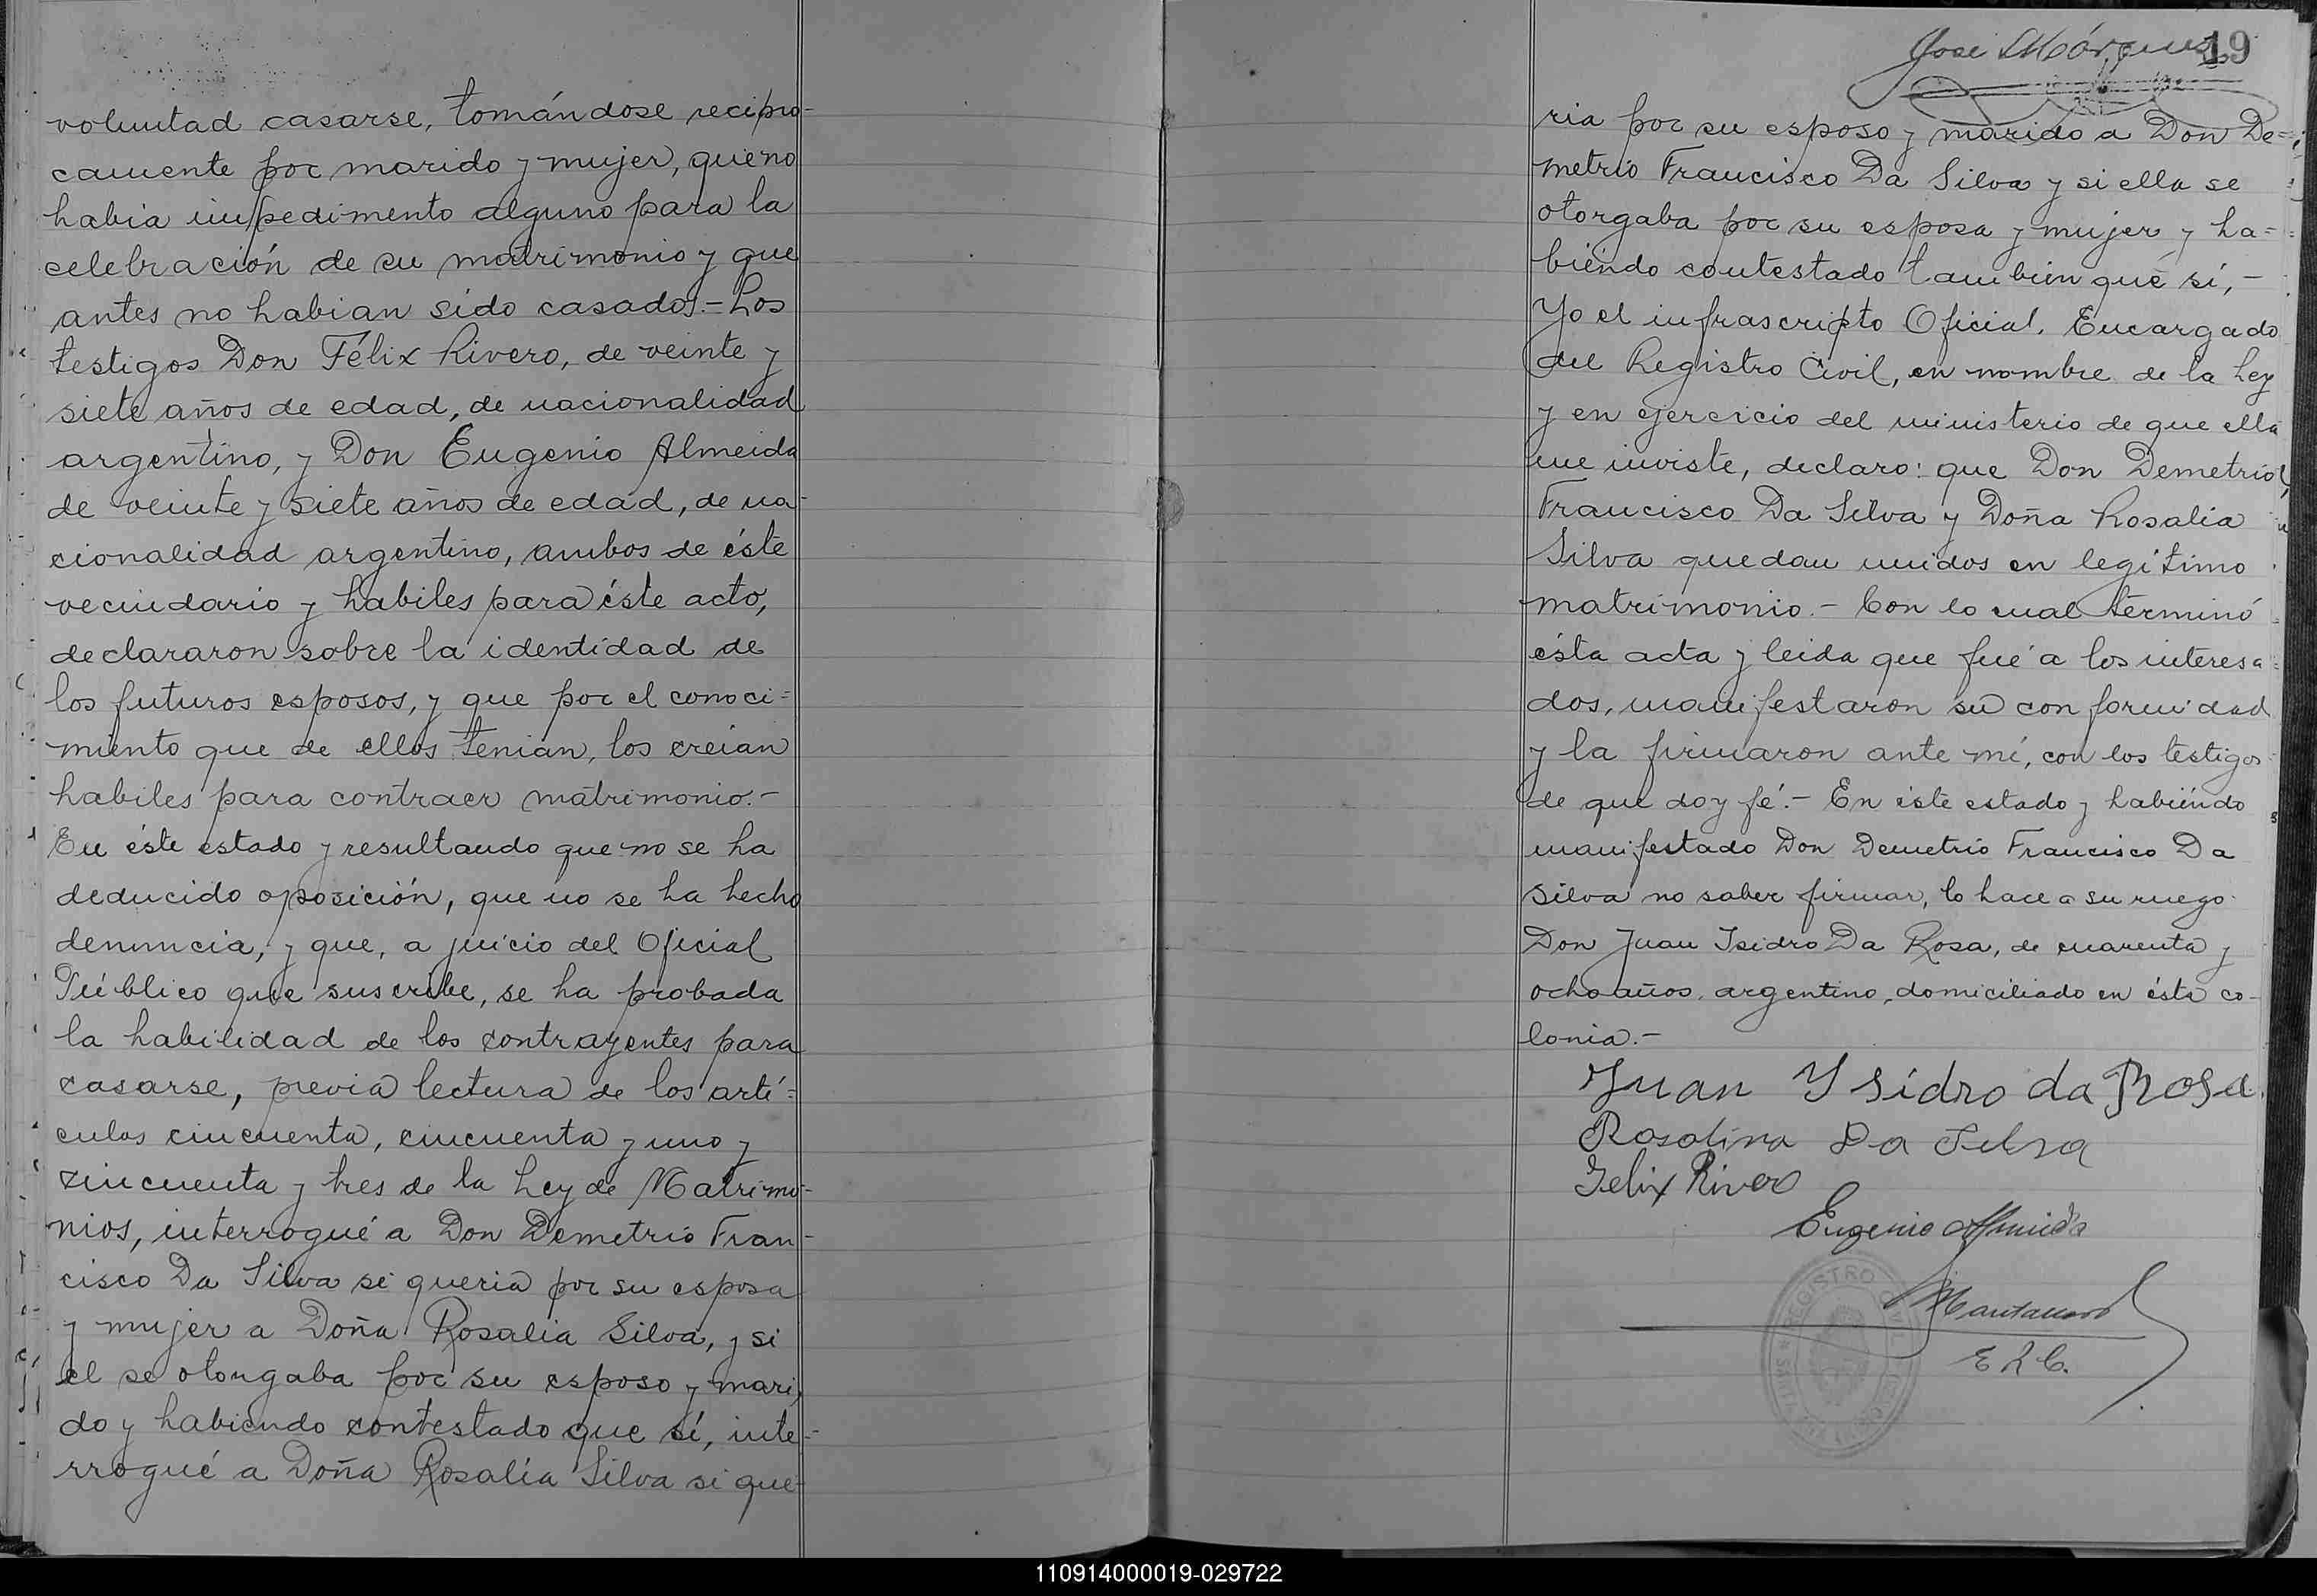 voluntad casarse, tomándose recipro-
camente por marido y mujer, que no
habia impedimento alguno para la
celebración de su matrimonio y que
antes no habian sido casados.- Los
testigos Don Félix Rivero, de veinte y
siete años de edad, de nacionalidad
argentino, y Don Eugenio Almeida
de veinte y siete años de edad, de na-
cionalidad argentino, ambos de éste
vecindario y habiles para éste acto,
declararon sobre la identidad de
los futuros esposos, y que por el conoci=
miento que de ellos tenian, los creian
habiles para contraer matrimonio.-
En éste estado y resultando que no se ha
deducido oposición, que no se ha hecho
denuncia, y que, a juicio del Oficial
Público que suscribe, se ha probada
la habilidad de los contrayentes para
casarse, previa lectura de los artí=
culos cincuenta, cincuenta y uno y
cincuenta y tres de la Ley de Matrimo-
nios, interrogué a Don Demetrio Fran-
cisco Da Silva si queria por su esposa
y mujer a Doña Rosalia Silva, y si
el se otorgaba por su esposo y mari-
do y habiendo contestado que sí, inte-
rrogué a Doña Rosalía Silva si que-
José Márquez
19
ria por su esposo y marido a Don De=
metrio Francisco Da Silva y si ella se
otorgaba por su esposa y mujer y ha=
biendo contestado tambien que sí,-
Yo el infrascripto Oficial, Encargado
del Registro Civil, en nombre de la Ley
y en ejercicio del ministerio de que ella
me inviste, declaro: que Don Demetrio
Francisco Da Silva y Doña Rosalia
Silva quedan unidos en legítimo
matrimonio.- Con lo cual terminó
ésta acta y leida que fué a los interesa=
dos, manifestaron su conformidad
y la firmaron ante mí, con los testigos
de que doy fé.- En éste estado y habiéndo
manifestado Don Demetrio Francisco Da
Silva no saber firmar, lo hace a su ruego
Don Juan Isidro Da Rosa, de cuarenta y
ocho años, argentino, domiciliado en ésta co-
lonia.-
Juan Ysidro da Rosa
Rosalina Da Silva
Felix Rivero
Eugenio Almeida
REGISTRO CIVIL
E R C.
110914000019-029722